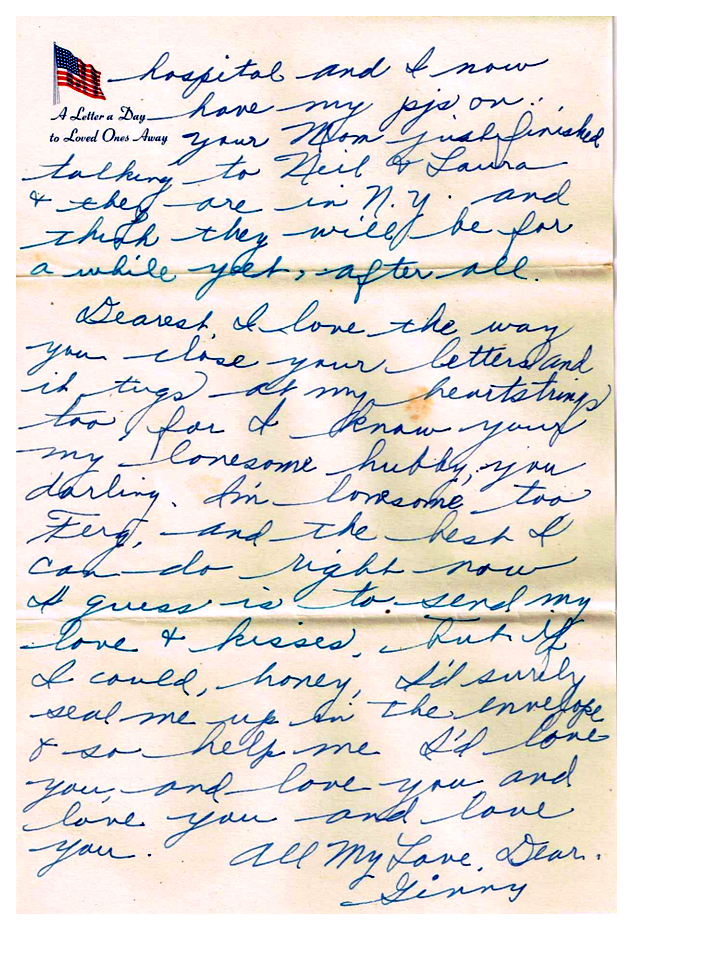 hospital and I now
A Letter a Day
to Loved Ones Away
have my pjs on.
your Mom just finished
talking to Neil & Laura
& they are in N.Y. and
think they will be for
a while yet, after all.
Dearest, I love the way
you close your letters and
it tugs at my heartstrings
too, for I know your
my lonesome hubby, you
darling. I'm lonesome too
Ferg, and the best I
can do right now
I guess is to send my
love & kisses, but if
I could, honey, I'd surely
seal me up in the envelope
& so help me I'd love
you, and love you and
love you and love
you. All My Love, Dear.
Ginny